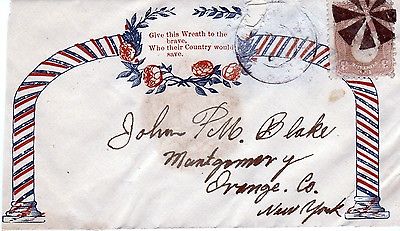 Give this Wreath to the
brave,
Who their Country would
save.
John P.M. Blake
Montgomery
Orange. Co.
New York